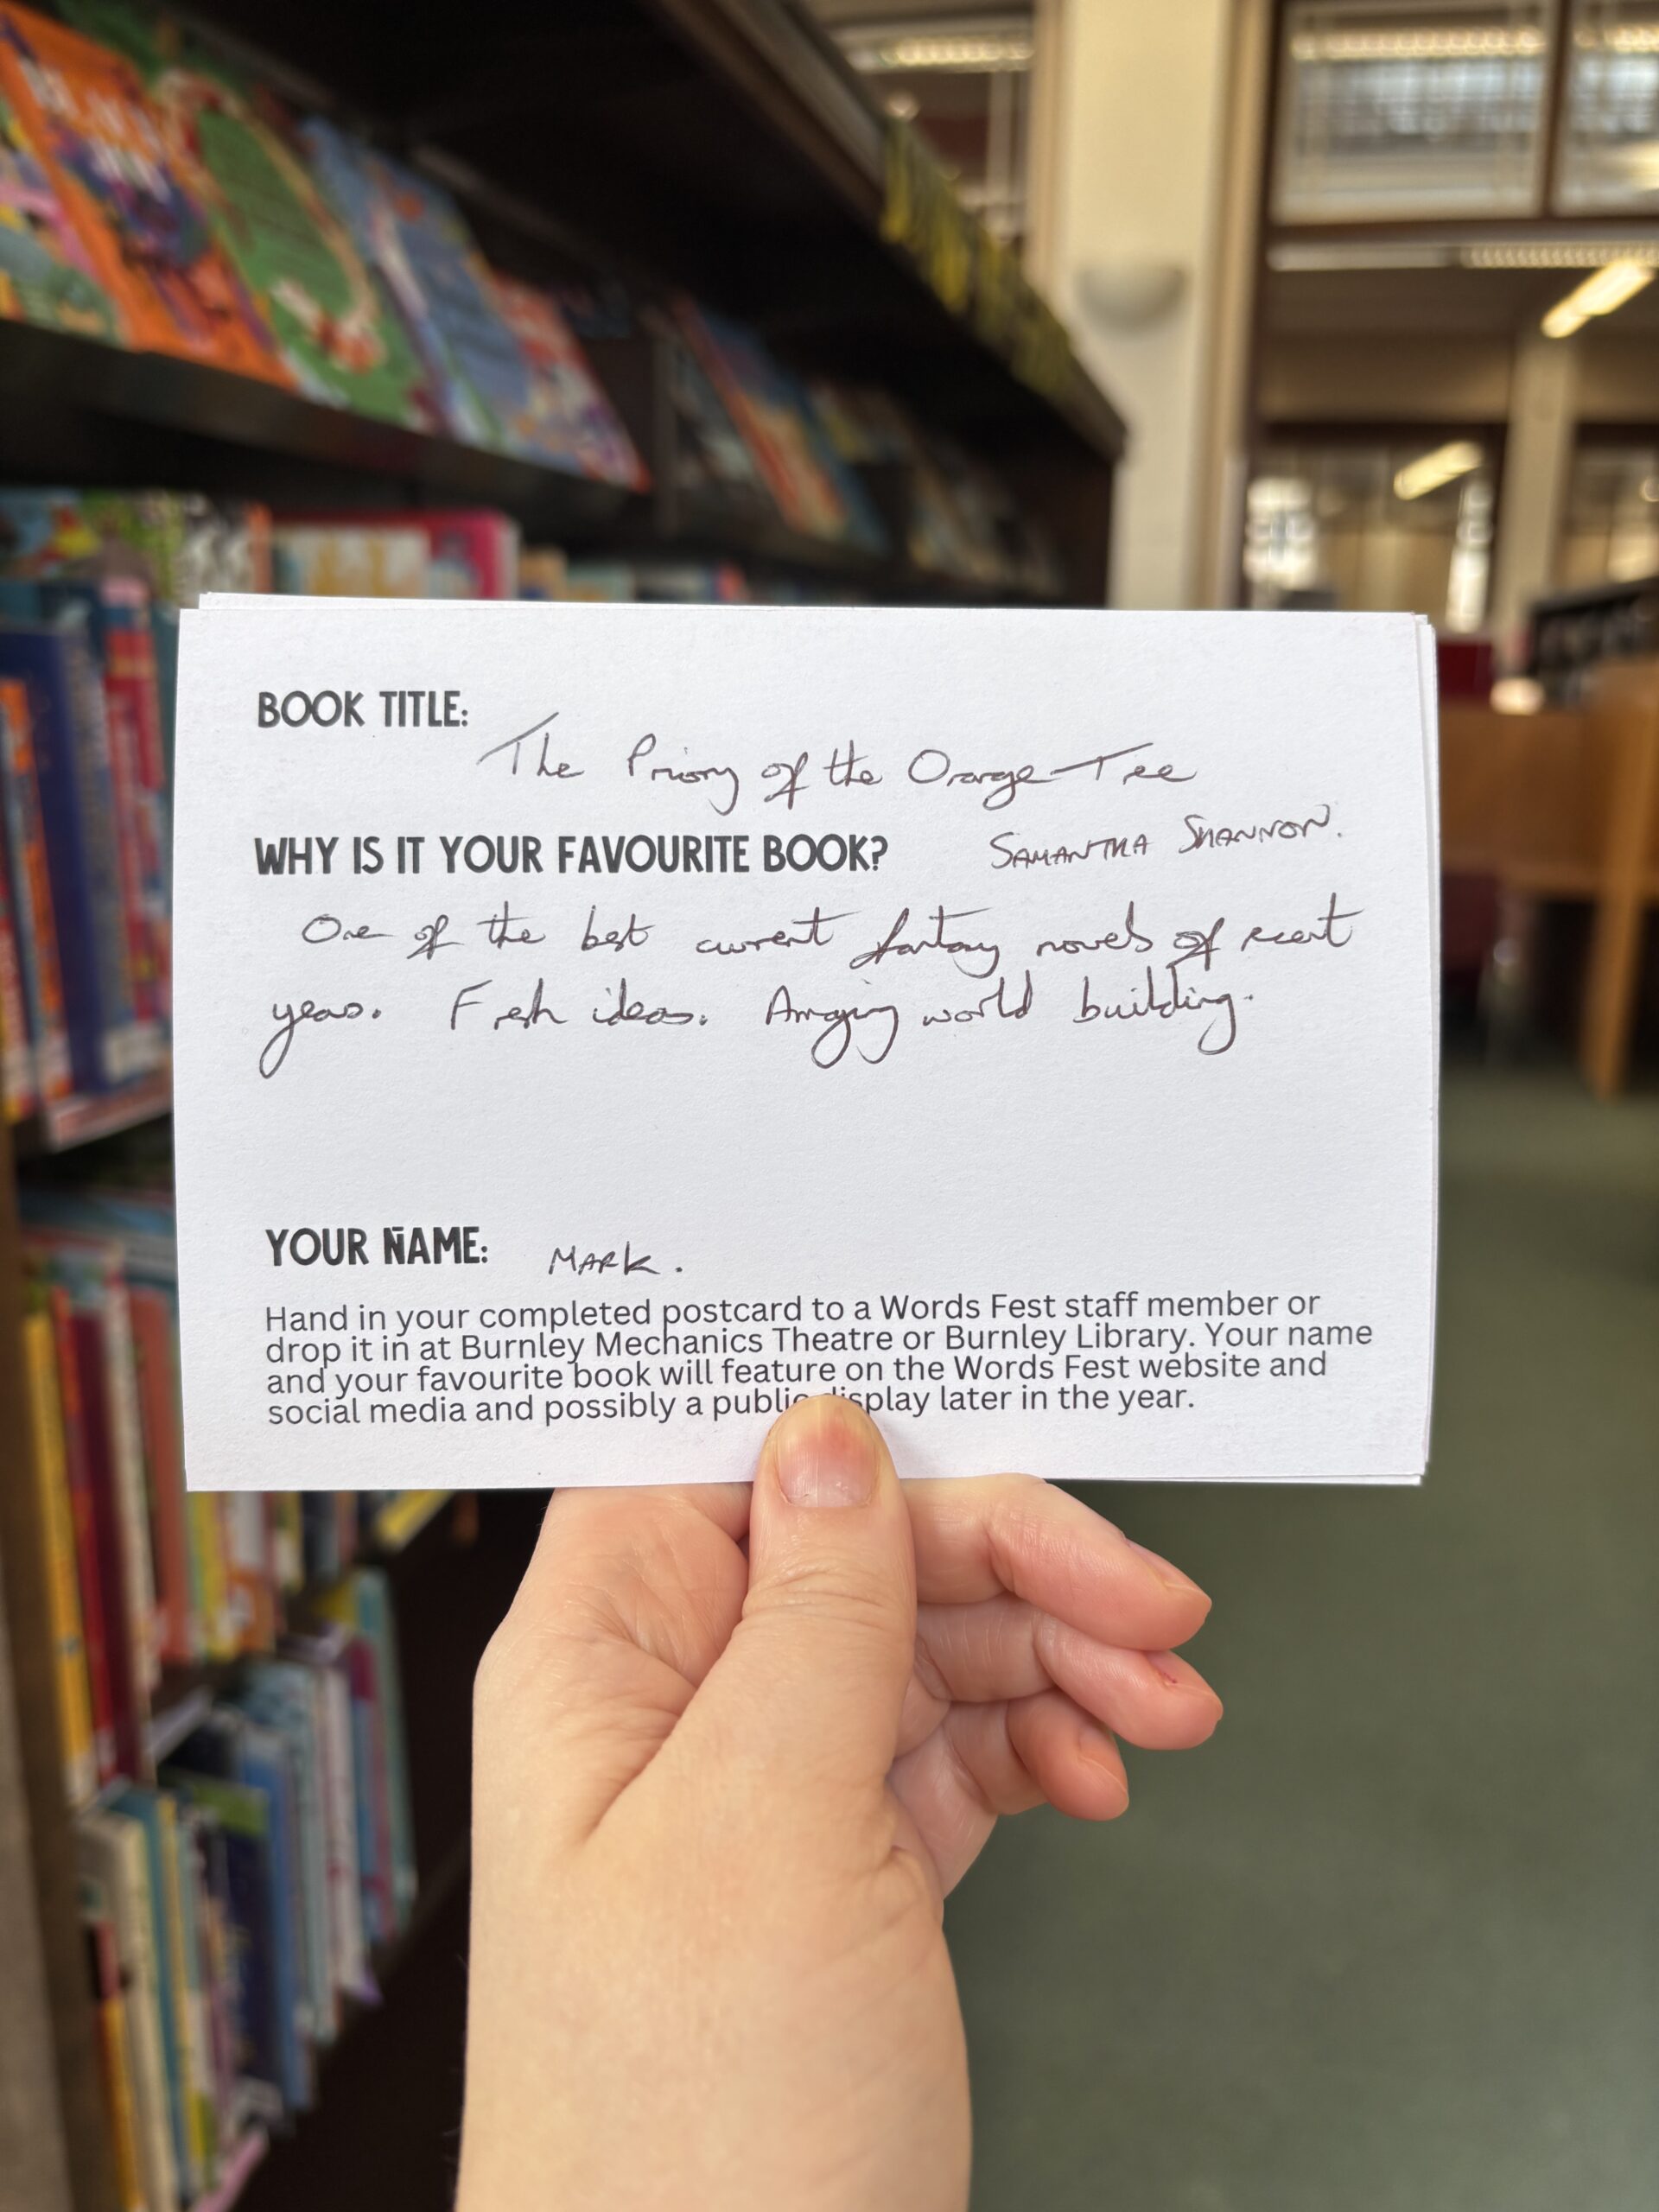 BOOK TITLE:
The Priory of the Orange Tree
WHY IS IT YOUR FAVOURITE BOOK?
SAMANTHA SHANNON.
One of the best current fantasy novels of recent
years. Fresh ideas. Amazing world building.
YOUR NAME: MARK.
Hand in your completed postcard to a Words Fest staff member or
drop it in at Burnley Mechanics Theatre or Burnley Library. Your name
and your favourite book will feature on the Words Fest website and
social media and possibly a public display later in the year.